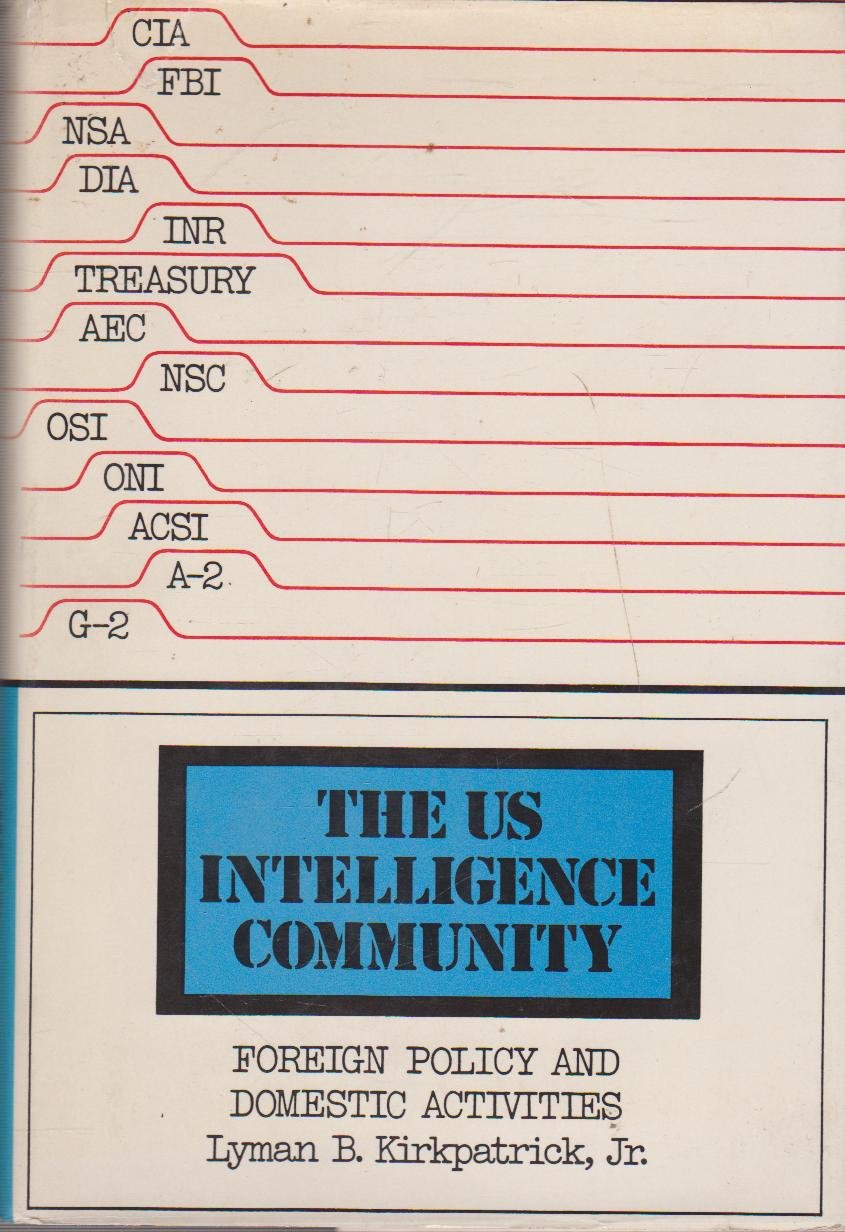 CIA
FBI
NSA
DIA
INR
TREASURY
AEC
NSC
OSI
ONI
ACSI
A-2
G-2
THE US
INTELLIGENCE
COMMUNITY
FOREIGN POLICY AND
DOMESTIC ACTIVITIES
Lyman B. Kirkpatrick, Jr.